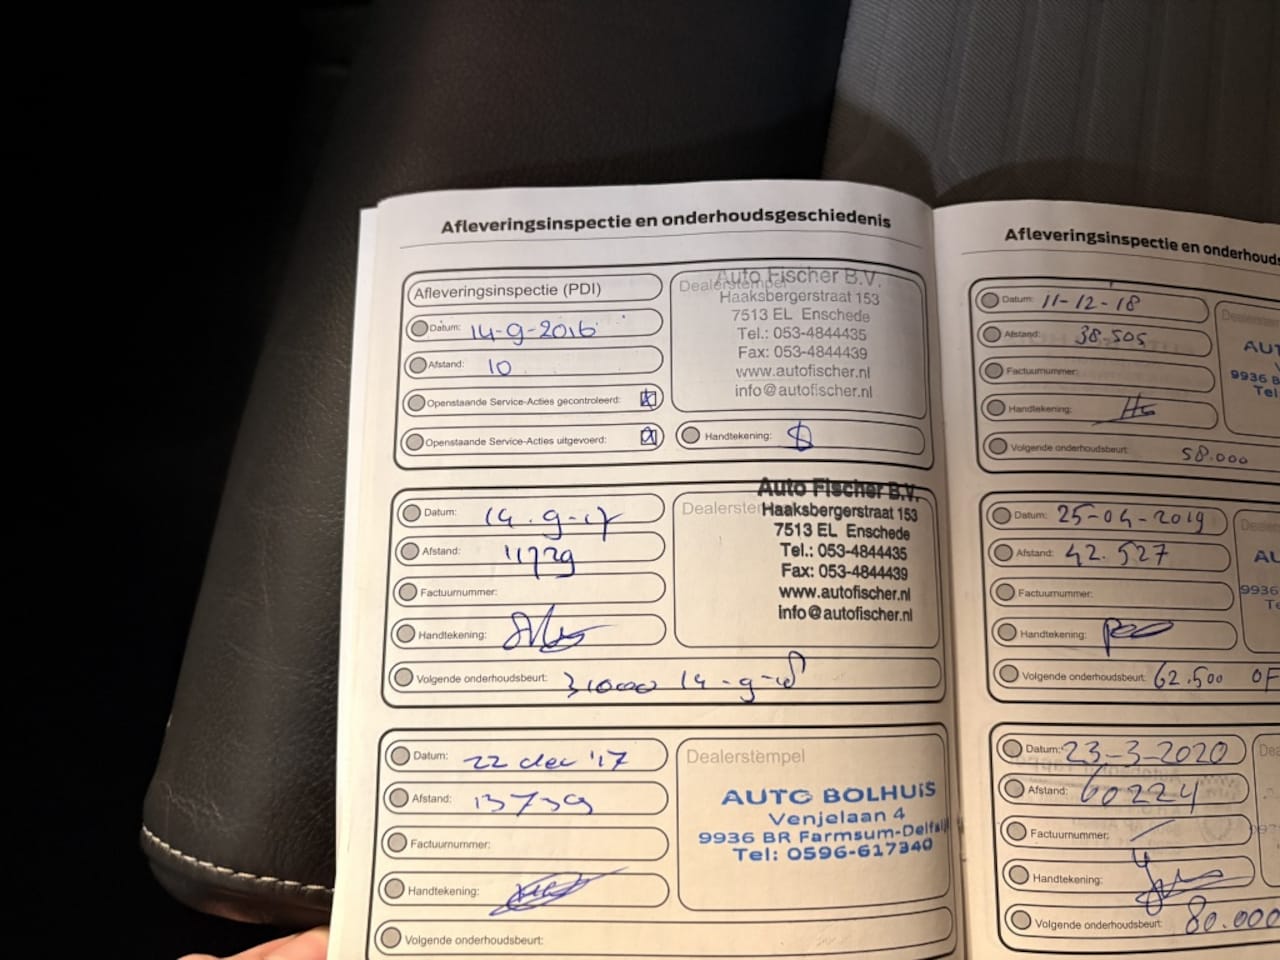 Afleveringsinspectie en onderhoudsgeschiedenis
Afleveringsinspectie (PDI)
Datum: 14-9-2016
Afstand: 10
Openstaande Service-Acties gecontroleerd:
Openstaande Service-Acties uitgevoerd:
Dealerstempel
Auto Fischer B.V.
Haaksbergerstraat 153
7513 EL Enschede
Tel.: 053-4844435
Fax: 053-4844439
www.autofischer.nl
info@autofischer.nl
Handtekening:
Datum: 14-9-17
Afstand: 11729
Factuurnummer:
Handtekening:
Volgende onderhoudsbeurt: 31000 14-9-18
Dealerstem
Auto Fischer B.V.
Haaksbergerstraat 153
7513 EL Enschede
Tel.: 053-4844435
Fax: 053-4844439
www.autofischer.nl
info@autofischer.nl
Datum: 22 dec '17
Afstand: 13739
Factuurnummer:
Handtekening:
Volgende onderhoudsbeurt:
Dealerstempel
AUTO BOLHUIS
Venjelaan 4
9936 BR Farmsum-Delfzij
Tel: 0596-617340
Afleveringsinspectie en onderhouds
Datum: 11-12-18
Afstand: 38.505
Factuurnummer:
Handtekening:
Volgende onderhoudsbeurt: 58.000
Dealerste
AUT
9936 B
Tel
Datum: 25-04-2019
Afstand: 42.527
Factuurnummer:
Handtekening:
Volgende onderhoudsbeurt: 62.500 OF
AU
9936
Te
Datum: 23-3-2020
Afstand: 60224
Factuurnummer:
Handtekening:
Volgende onderhoudsbeurt: 80.000
Dea